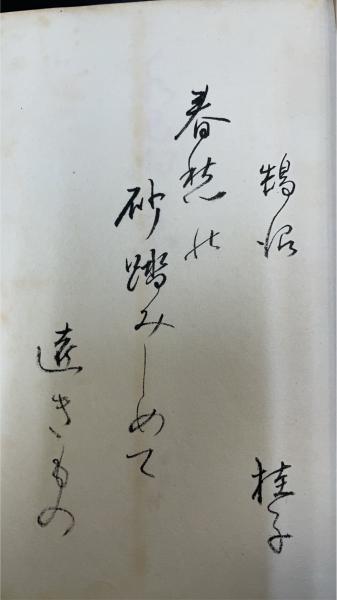 鵠沼 桂子
春愁の
砂踏みしめて
遠きもの